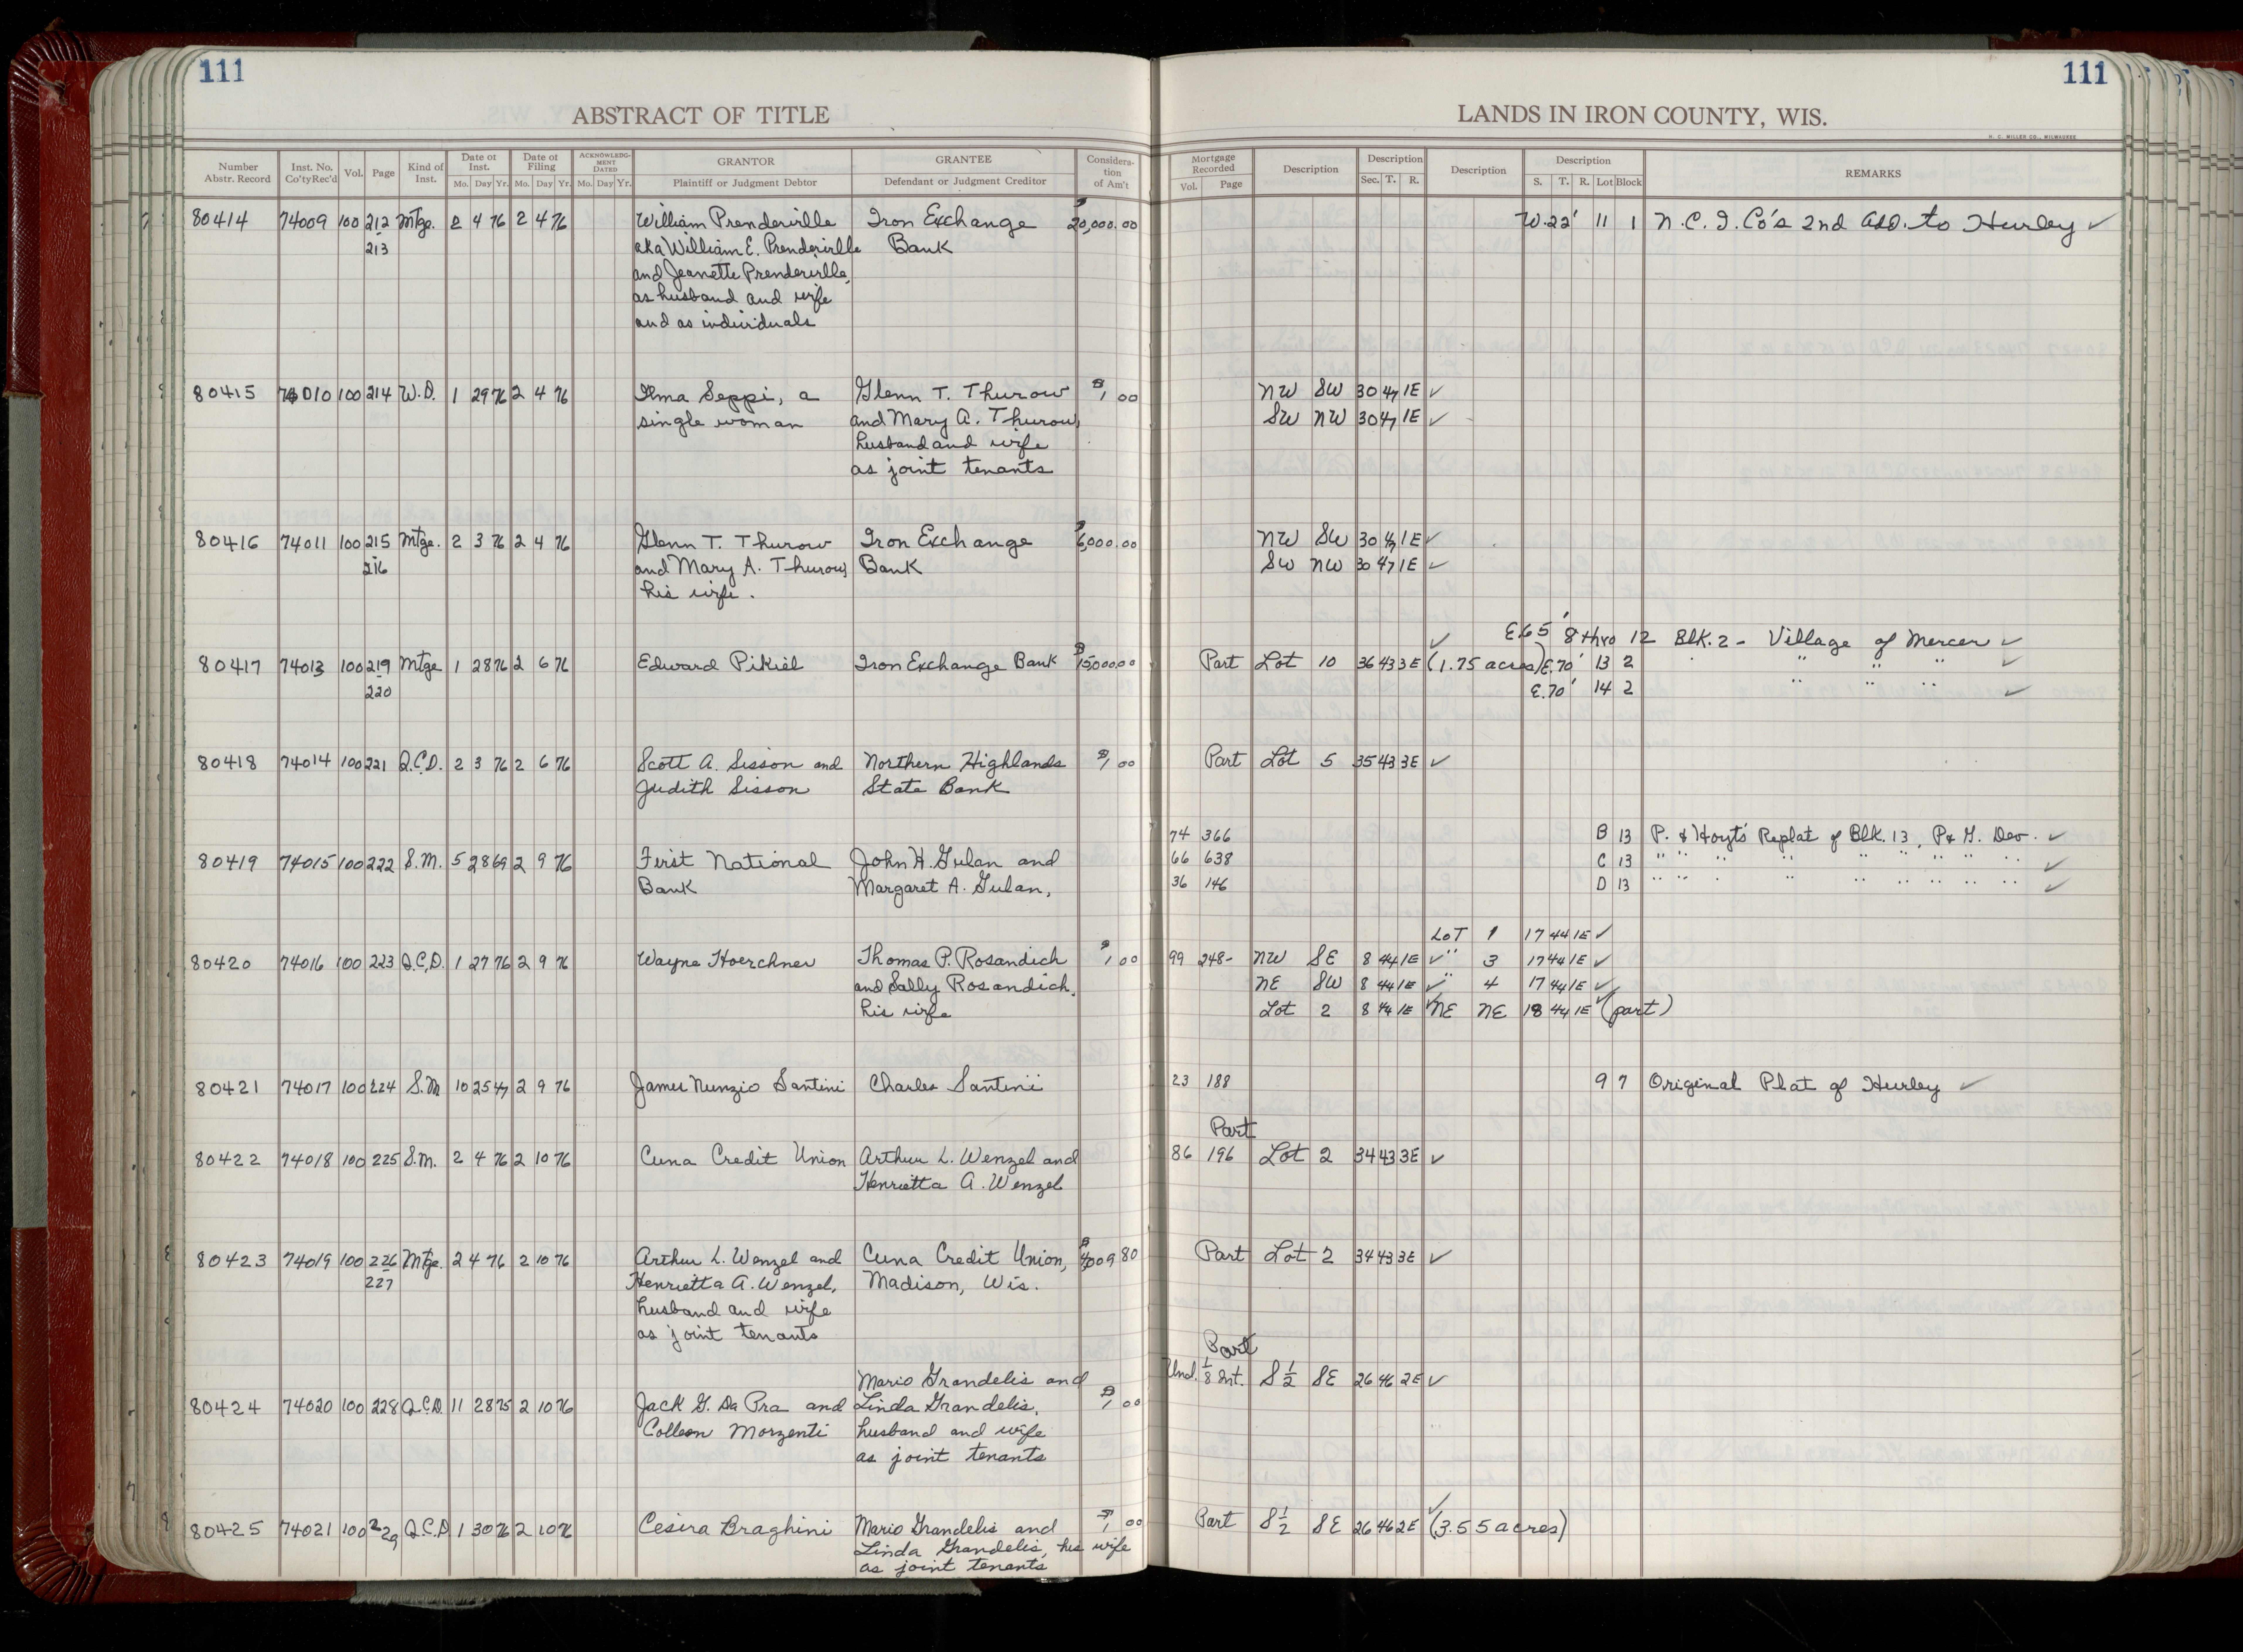 111
111
ABSTRACT OF TITLE
LANDS IN IRON COUNTY, WIS.
H. C. MILLER CO., MILWAUKEE
Number Abstr. Record | Inst. No. Co'ty Rec'd | Vol. | Page | Kind of Inst. | Date of Inst. Mo. Day Yr. | Date of Filing Mo. Day Yr. | ACKNOWLEDGMENT DATED Mo. Day Yr. | GRANTOR Plaintiff or Judgment Debtor | GRANTEE Defendant or Judgment Creditor | Consideration of Am't | Mortgage Recorded Vol. Page | Description | Description Sec. T. R. | Description | Description S. T. R. Lot Block | REMARKS
80414 74009 100 212 Mtge. 2 4 76 2 4 76 William Prenderville Iron Exchange $20,000.00 W.22' 11 1 N.C.I. Co's 2nd Add. to Hurley ✓
213 aka William E. Prenderville Bank
and Jeanette Prenderville,
as husband and wife
and as individuals
80415 74010 100 214 W.D. 1 29 76 2 4 76 Ilma Seppi, a Glenn T. Thurow $1.00 NW SW 30 47 1E ✓
single woman and Mary A. Thurow, SW NW 30 47 1E ✓
husband and wife
as joint tenants
80416 74011 100 215 Mtge. 2 3 76 2 4 76 Glenn T. Thurow Iron Exchange $6,000.00 NW SW 30 47 1E ✓
216 and Mary A. Thurow, Bank SW NW 30 47 1E ✓
his wife.
✓ E.65' 8 thro 12 Blk. 2 - Village of Mercer ✓
80417 74013 100 219 Mtge 1 28 76 2 6 76 Edward Pikiel Iron Exchange Bank $15,000.00 Part Lot 10 36 43 3E (1.75 acres) E.70' 13 2 " " " ✓
220 E.70' 14 2 " " " ✓
80418 74014 100 221 Q.C.D. 2 3 76 2 6 76 Scott A. Sisson and Northern Highlands $1.00 Part Lot 5 35 43 3E ✓
Judith Sisson State Bank
74 366 B 13 P. & Hoyt's Replat of Blk. 13, P & G. Dev. ✓
80419 74015 100 222 S.M. 5 28 69 2 9 76 First National John H. Gulan and 66 638 C 13 " " " " " " " " ✓
Bank Margaret A. Gulan, 36 146 D 13 " " " " " " " " ✓
Lot 1 17 44 1E ✓
80420 74016 100 223 Q.C.D. 1 27 76 2 9 76 Wayne Hoerchner Thomas P. Rosandich $1.00 99 248- NW SE 8 44 1E ✓ " 3 17 44 1E ✓
and Sally Rosandich, NE SW 8 44 1E ✓ " 4 17 44 1E ✓
his wife Lot 2 8 44 1E ✓ NE NE 18 44 1E ✓ (part)
80421 74017 100 224 S.M 10 25 47 2 9 76 James Nunzio Santini Charles Santini 23 188 9 7 Original Plat of Hurley ✓
Part
80422 74018 100 225 S.M. 2 4 76 2 10 76 Cuna Credit Union Arthur L. Wenzel and 86 196 Lot 2 34 43 3E ✓
Henrietta A. Wenzel
80423 74019 100 226 Mtge. 2 4 76 2 10 76 Arthur L. Wenzel and Cuna Credit Union, $4,009 80 Part Lot 2 34 43 3E ✓
227 Henrietta A. Wenzel, Madison, Wis.
husband and wife
as joint tenants
Part
Mario Grandelis and Und. 1/8 Int. S 1/2 SE 26 46 2E ✓
80424 74020 100 228 Q.C.D. 11 28 75 2 10 76 Jack G. Da Pra and Linda Grandelis, $1.00
Colleen Morzenti husband and wife
as joint tenants
80425 74021 100 229 Q.C.D 1 30 76 2 10 76 Cesira Braghini Mario Grandelis and $1.00 Part S 1/2 SE 26 46 2E ✓ (3.55 acres)
Linda Grandelis, his wife
as joint tenants